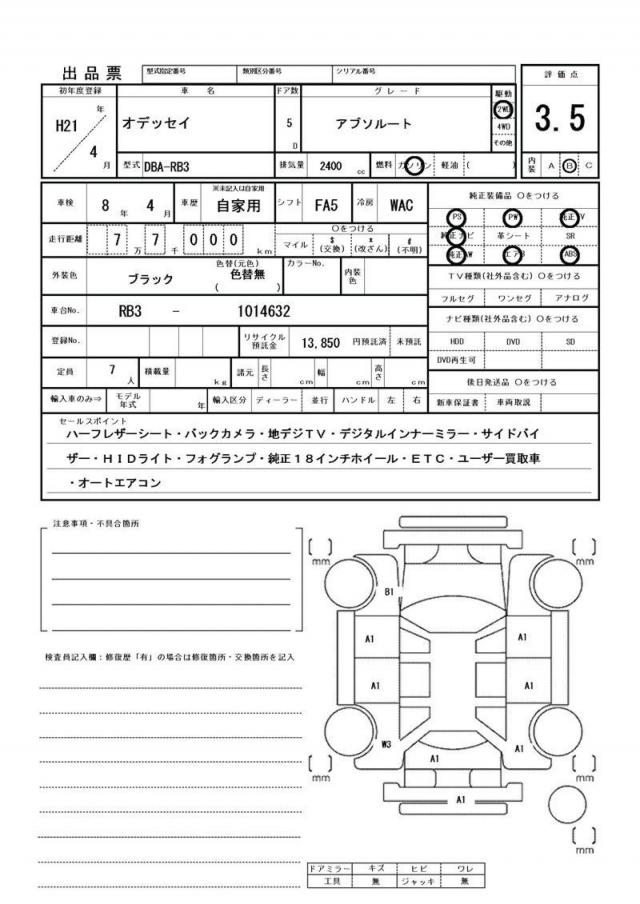 出品票 型式指定番号 類別区分番号 シリアル番号
評価点
3.5
初年度登録 車名 ドア数 グレード 駆動
H21 年 4 月 オデッセイ 5 D アブソルート 2WD 4WD その他
型式 DBA-RB3 排気量 2400 cc 燃料 ガソリン 軽油 ( )
内装 A B C
車検 8 年 4 月 車歴 ※未記入は自家用 自家用 シフト FA5 冷房 WAC
純正装備品 ○をつける
PS PW 純正TV
純正ナビ 革シート SR
純正AW エアB ABS
走行距離 7 万 7 千 0 0 0 km
○をつける
マイル $ (交換) x (改ざん) # (不明)
外装色 ブラック 色替(元色) 色替無 ( ) カラーNo. 内装色
TV種類(社外品含む) ○をつける
フルセグ ワンセグ アナログ
車台No. RB3 - 1014632
ナビ種類(社外品含む) ○をつける
HDD DVD SD
DVD再生可
登録No. リサイクル預託金 13,850 円預託済 未預託
定員 7 人 積載量 kg 諸元 長さ cm 幅 cm 高さ cm
後日発送品 ○をつける
新車保証書 車両取説
輸入車のみ⇒ モデル年式 年 輸入区分 ディーラー 並行 ハンドル 左 右
セールスポイント
ハーフレザーシート・バックカメラ・地デジTV・デジタルインナーミラー・サイドバイ
ザー・HIDライト・フォグランプ・純正18インチホイール・ETC・ユーザー買取車
・オートエアコン
注意事項・不具合箇所
検査員記入欄：修復歴「有」の場合は修復箇所・交換箇所を記入
[ ] mm [ ] mm
B1
A1 A1
A1 A1
W3 A1
A1
[ ] mm [ ] mm
A1
[ ] mm
ドアミラー キズ ヒビ ワレ
工具 無 ジャッキ 無